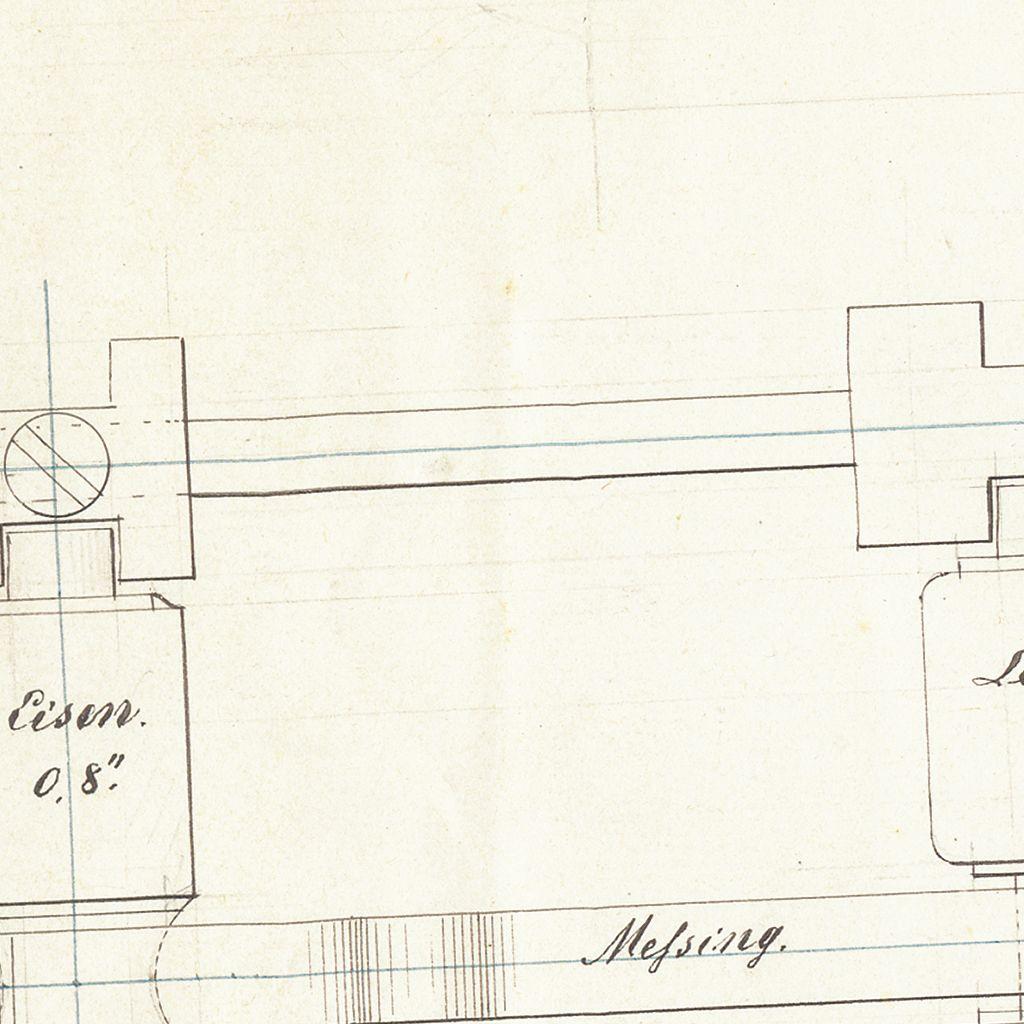 Eisen.
0,8".
Meſsing.